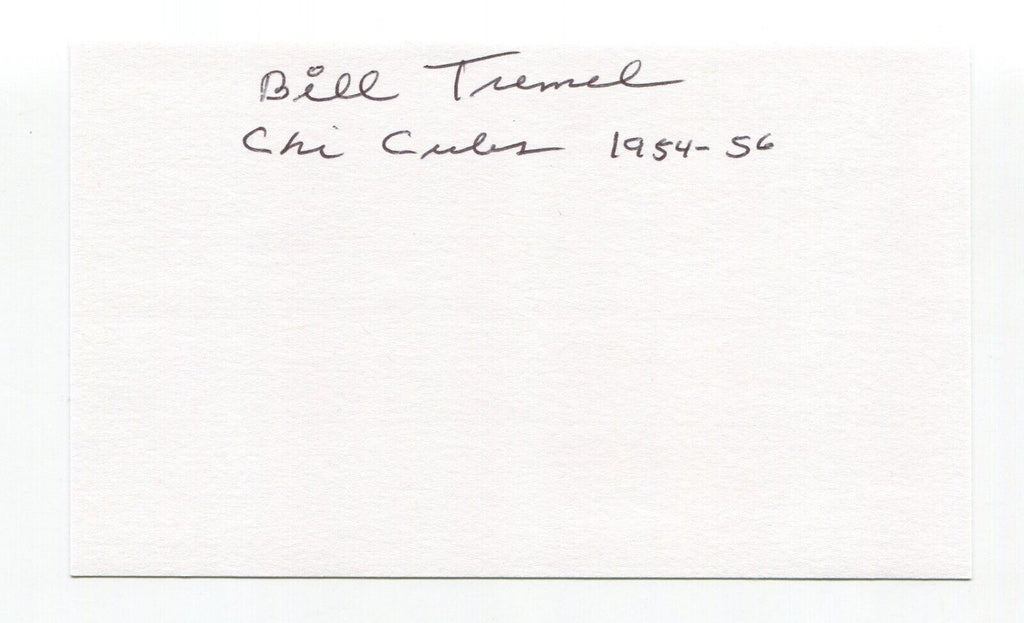 Bill Tremel
Chi Cubs 1954-56